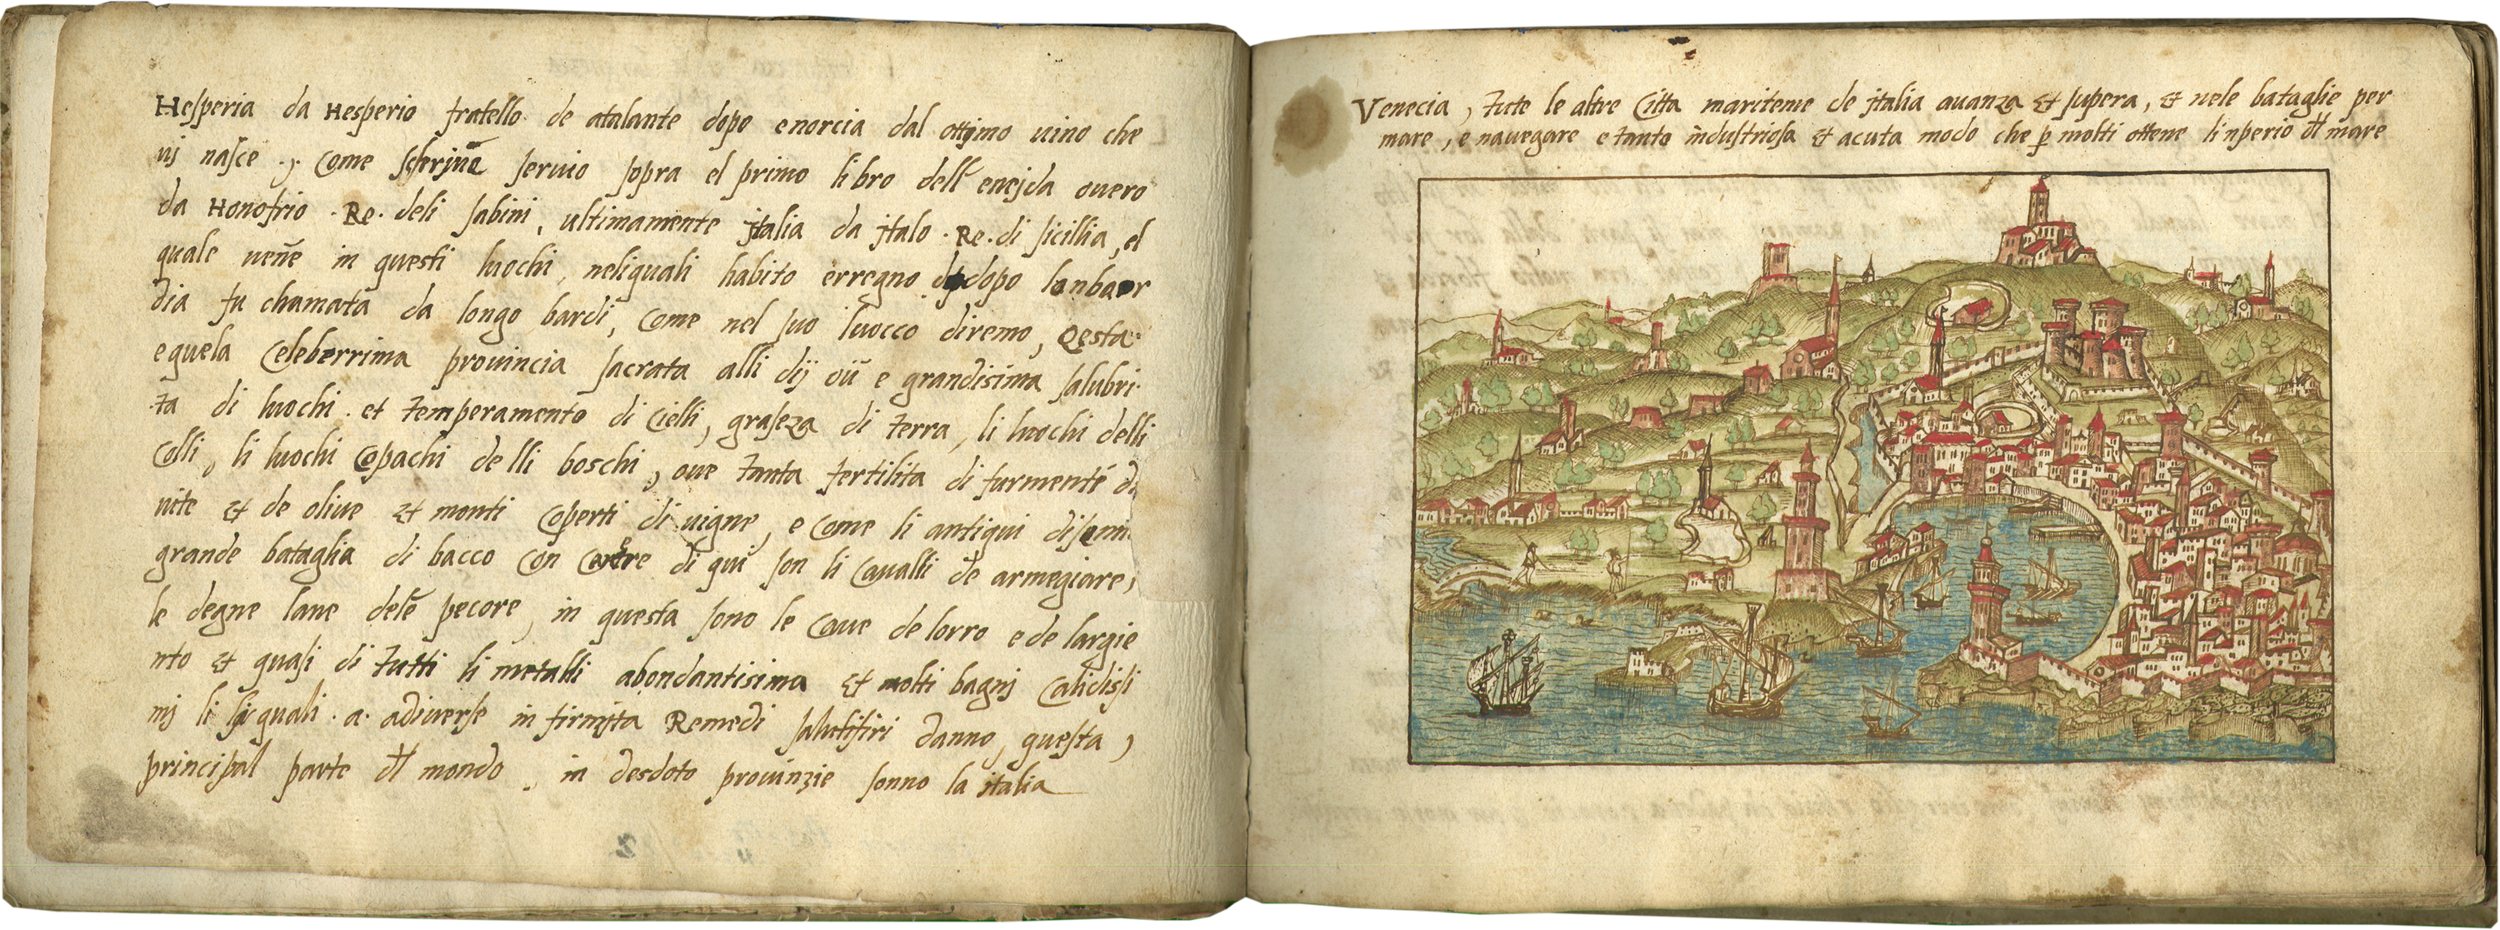 Hesperia da Hesperio fratello de atalante dopo enorcia dal ottimo uino che
uj nasce ., come scriuē seruio sopra el primo libro dell enejda ouero
da Honofrio . Re . deli sabini, ultimamente jtalia da jtalo . Re . di sicillia, el
quale ueñe in questi luochi, neliquali habito erregno dopo lonbar
dia fu chamata da longo bardi, come nel suo luocco diremo, Qesta
equela Celeberrima prouincia sacrata alli dij oū e grandisima salubri
ta di luochi . et temperamento di Cielli, graseza di terra, li luochi delli
Colli, li luochi Opachi de lli boschi, oue tanta fertilita di furmenti
uite et de oliue et monti Coperti di uigne, e Come li antiqui
grande bataglia di bacco Con di qui son li Caualli de armegiare,
le degne lane dele pecore, in questa sono le Caue de lorro e de largie
nto et quasi di tutti li metalli abondantisima et molti bagnj Calidissi
mj li quali . a . adiuerse in firmita Remedi salutifiri danno, questa,
principal parte dl mondo, in desdoto prouinzie sonno la italia
Venecia, tute le altre Citta mariteme de jtalia auanza et supera, et nele bataglie per
mare, e nauegare e tanto industriosa et acuta modo che p molti ottene linperio dl mare